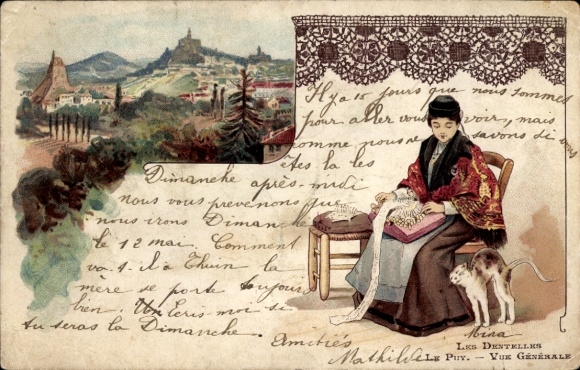 Il y a 15 jours que nous sommes
pour aller vous voir, mais
comme nous ne savons si vous
êtes la les
Dimanche après-midi
nous vous prevenons que
nous irons Dimanche
le 12 mai. Comment
va-t-il à Thuin la
mère se porte toujour
bien. Un ecris-moi si
tu seras la Dimanche.
Amitiés
Mathilde
Mina
LES DENTELLES
LE PUY. — VUE GÉNÉRALE